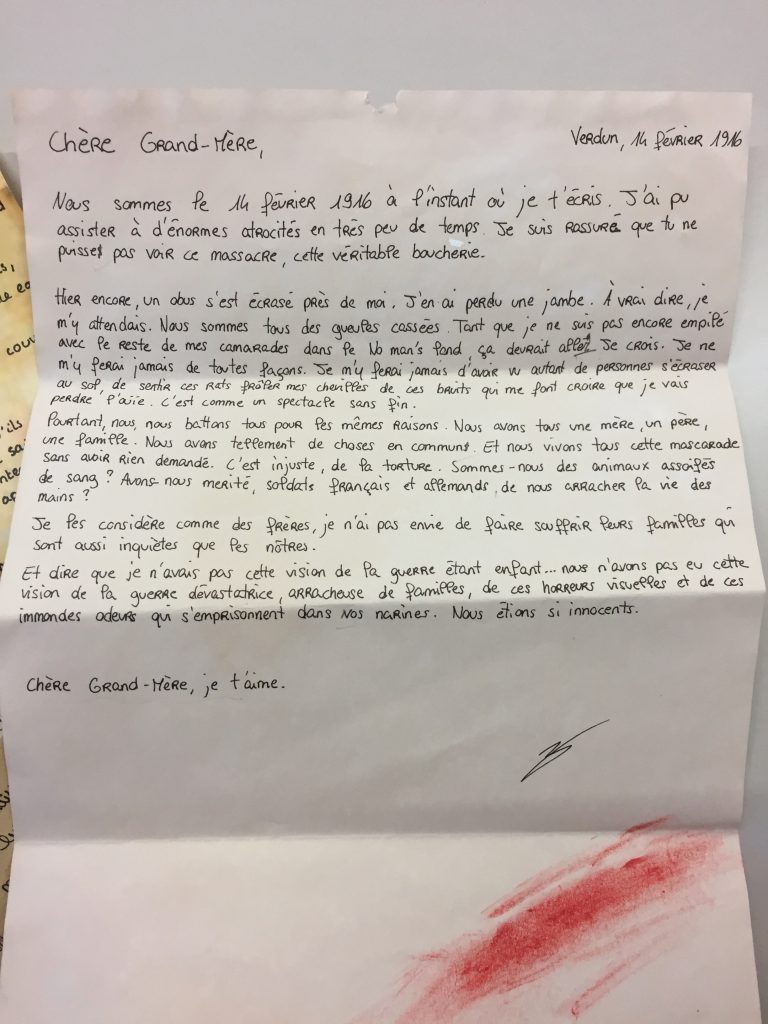 Chère Grand-Mère,
Verdun, 14 février 1916
Nous sommes le 14 février 1916 à l'instant où je t'écris. J'ai pu
assister à d'énormes atrocités en très peu de temps. Je suis rassuré que tu ne
puisses pas voir ce massacre, cette véritable boucherie.
Hier encore, un obus s'est écrasé près de moi. J'en ai perdu une jambe. À vrai dire, je
m'y attendais. Nous sommes tous des gueules cassées. Tant que je ne suis pas encore empilé
avec le reste de mes camarades dans le No man's land, ça devrait aller. Je crois. Je ne
m'y ferai jamais de toutes façons. Je m'y ferai jamais d'avoir vu autant de personnes s'écraser
au sol de sentir ces rats frôler mes chevilles de ces bruits qui me font croire que je vais
perdre l'ouïe. C'est comme un spectacle sans fin.
Pourtant, nous, nous battons tous pour les mêmes raisons. Nous avons tous une mère, un père,
une famille. Nous avons tellement de choses en commun. Et nous vivons tous cette mascarade
sans avoir rien demandé. C'est injuste, de la torture. Sommes-nous des animaux assoifés
de sang ? Avons-nous merité, soldats français et allemands, de nous arracher la vie des
mains ?
Je les considère comme des frères, je n'ai pas envie de faire souffrir leurs familles qui
sont aussi inquiètes que les nôtres.
Et dire que je n'avais pas cette vision de la guerre étant enfant... nous n'avons pas eu cette
vision de la guerre dévastatrice, arracheuse de familles, de ces horreurs visuelles et de ces
immondes odeurs qui s'emprisonnent dans nos narines. Nous étions si innocents.
Chère Grand-Mère, je t'aime.